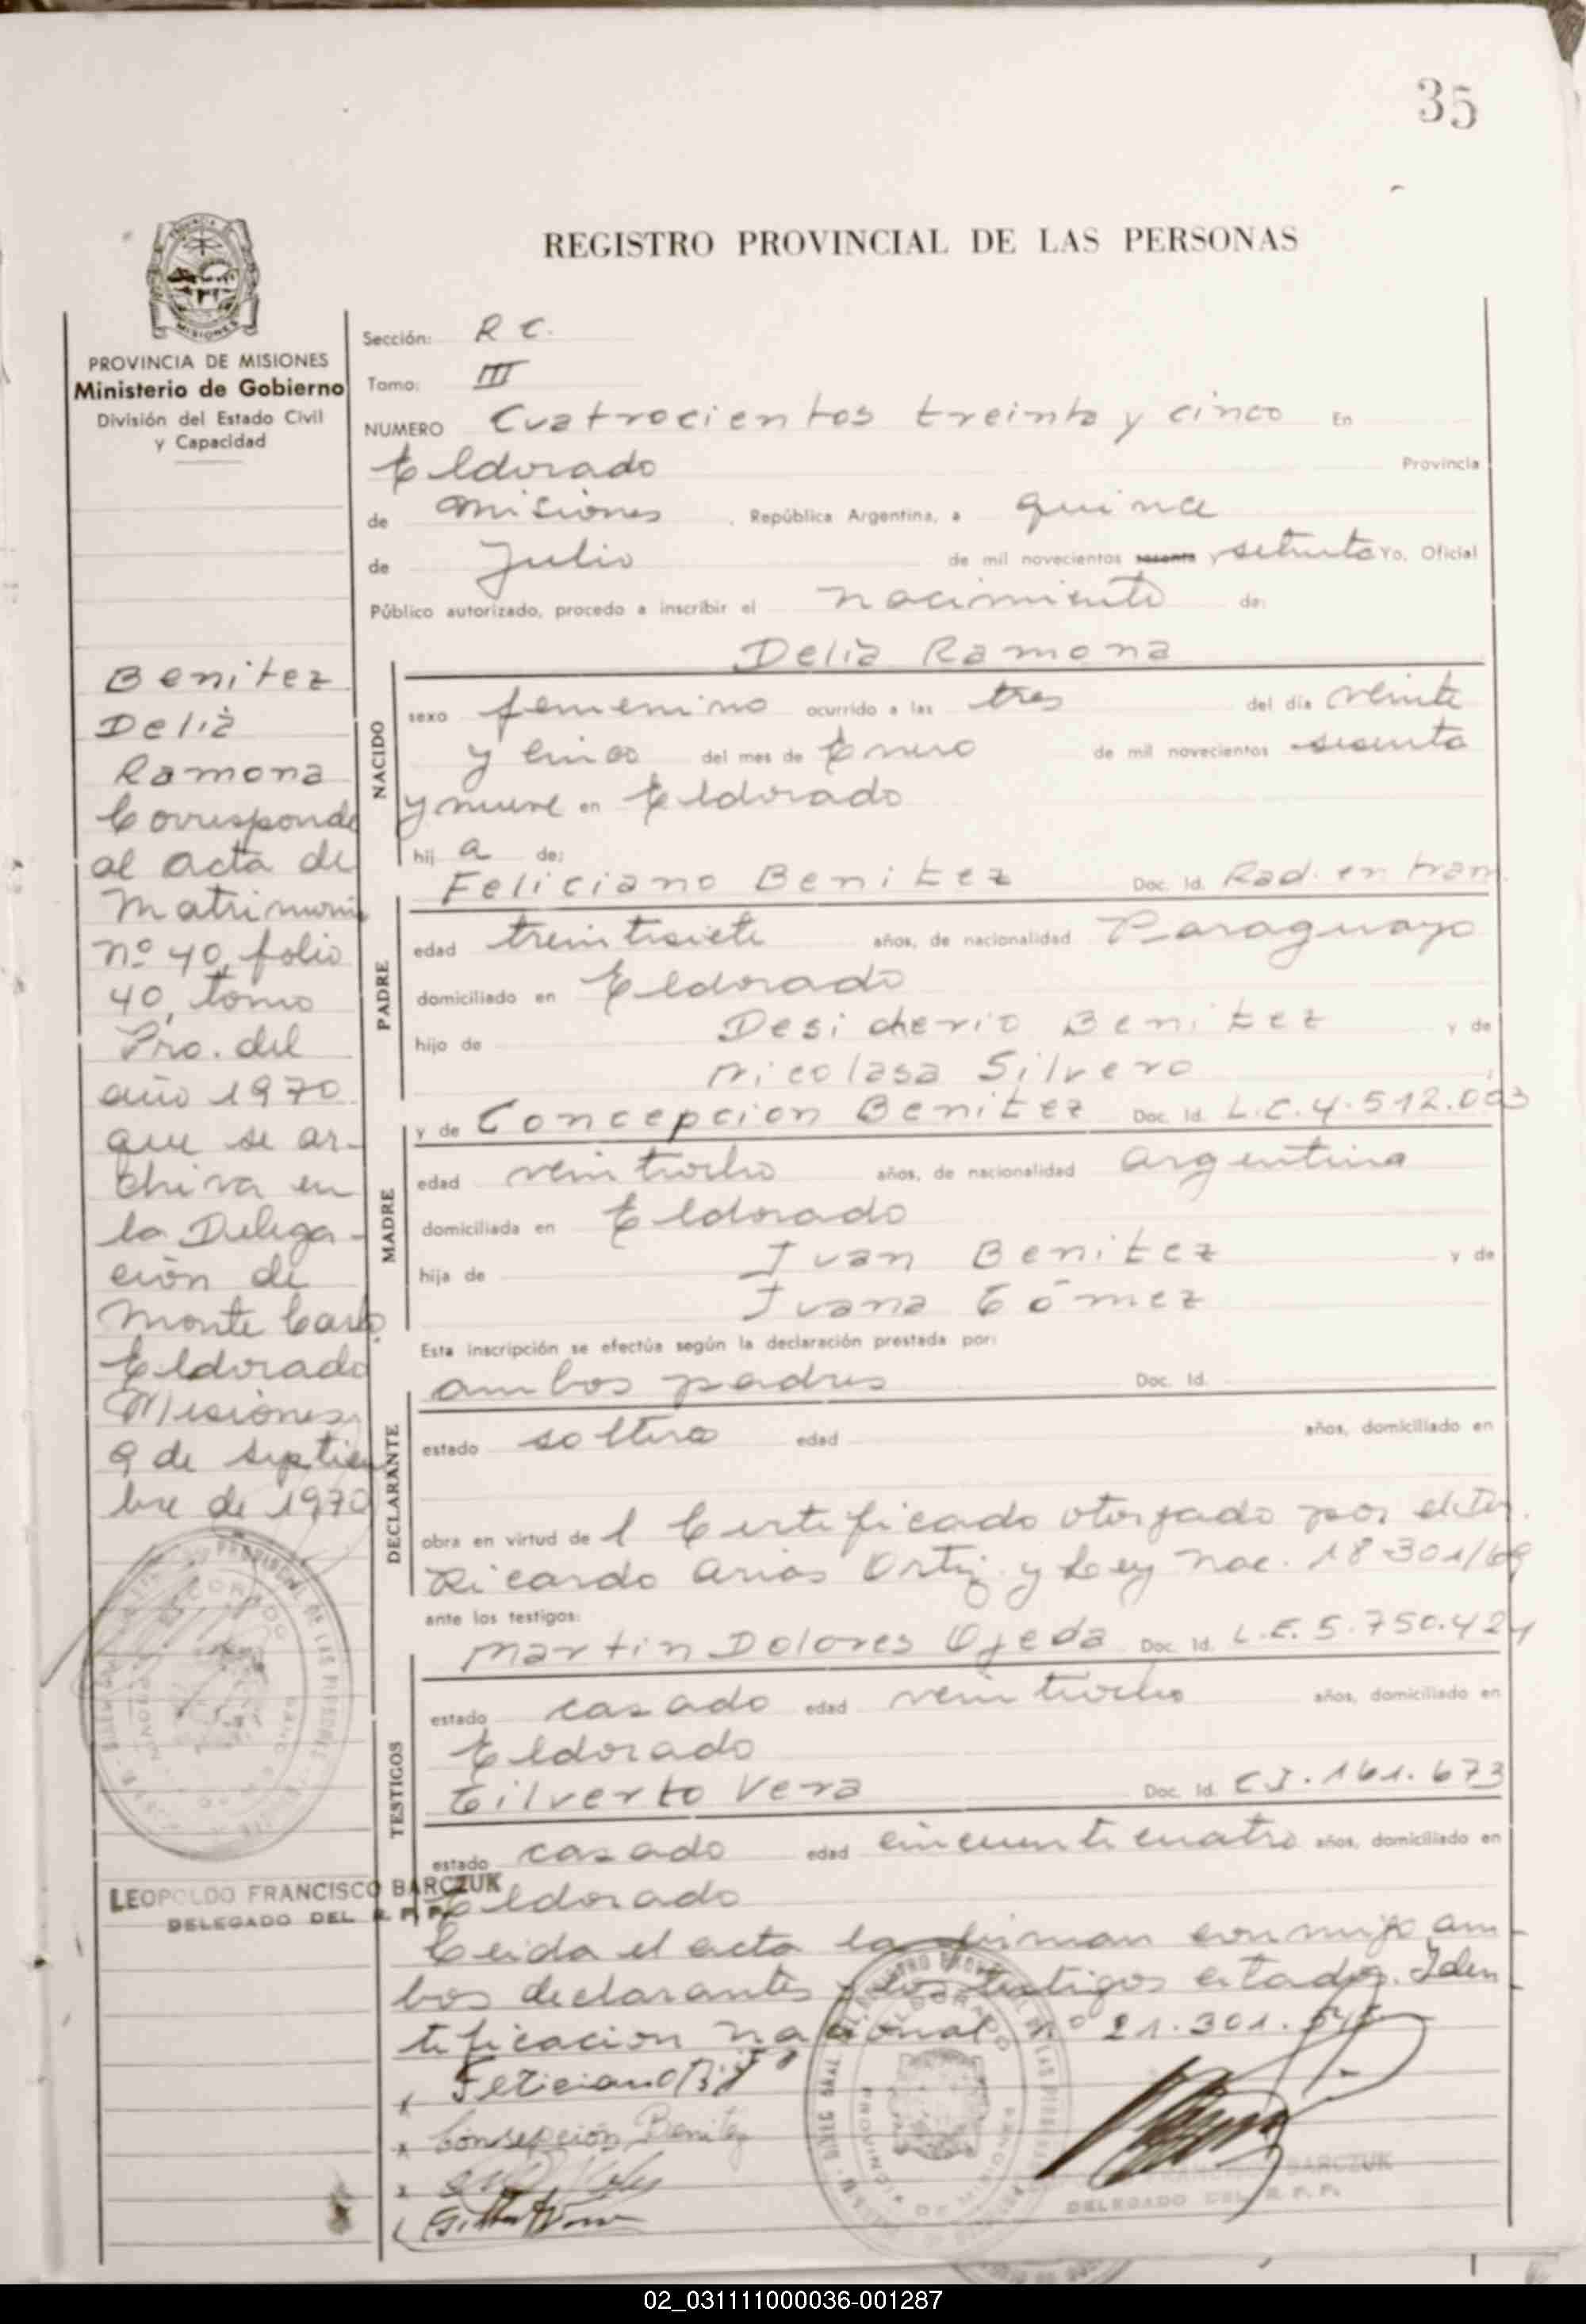 35
REGISTRO PROVINCIAL DE LAS PERSONAS
PROVINCIA DE MISIONES
Ministerio de Gobierno
División del Estado Civil
y Capacidad
Sección: R C.
Tomo: III
NUMERO Cuatrocientos treinta y cinco En
Eldorado Provincia
de Misiones , República Argentina, a quince
de Julio de mil novecientos sesenta y setenta Yo, Oficial
Público autorizado, procedo a inscribir el nacimiento de:
Delia Ramona
NACIDO
sexo femenino ocurrido a las tres del día veinte
y cinco del mes de Enero de mil novecientos sesenta
y nueve en Eldorado
hij a de:
Feliciano Benitez Doc. Id. Rad. en tram.
PADRE
edad treintisiete años, de nacionalidad Paraguayo
domiciliado en Eldorado
hijo de Desiderio Benitez y de
Nicolasa Silvero
y de Concepcion Benitez Doc. Id. L.C. 4.512.003
MADRE
edad veintiocho años, de nacionalidad argentina
domiciliada en Eldorado
hija de Juan Benitez y de
Juana Gómez
Esta inscripción se efectúa según la declaración prestada por:
ambos padres Doc. Id.
DECLARANTE
estado soltero edad años, domiciliado en
obra en virtud de l Certificado otorgado por el Dr.
Ricardo Arias Ortiz y Ley Nac. 18.301/69
ante los testigos:
Martin Dolores Ojeda Doc. Id. L.E. 5.750.421
TESTIGOS
estado casado edad veintiocho años, domiciliado en
Eldorado
Gilverto Vera Doc. Id. C.I. 161.673
estado casado edad cincuenticuatro años, domiciliado en
Eldorado
Leida el acta la firman conmigo am-
bos declarantes y los testigos citados. Iden-
tificacion nacional nº 21.301.
Feliciano
Consepción Benitez
Benitez
Delia
Ramona
Corresponde
al acta de
Matrimonio
nº 40, folio
40, tomo
1ro. del
año 1970
que se ar-
chiva en
la Delega-
ción de
Monte Carlo.
Eldorado
Misiones,
9 de septiem
bre de 1970
LEOPOLDO FRANCISCO BARCZUK
DELEGADO DEL R. P. P.
BARCZUK
DELEGADO DEL R. P. P.
02_031111000036-001287